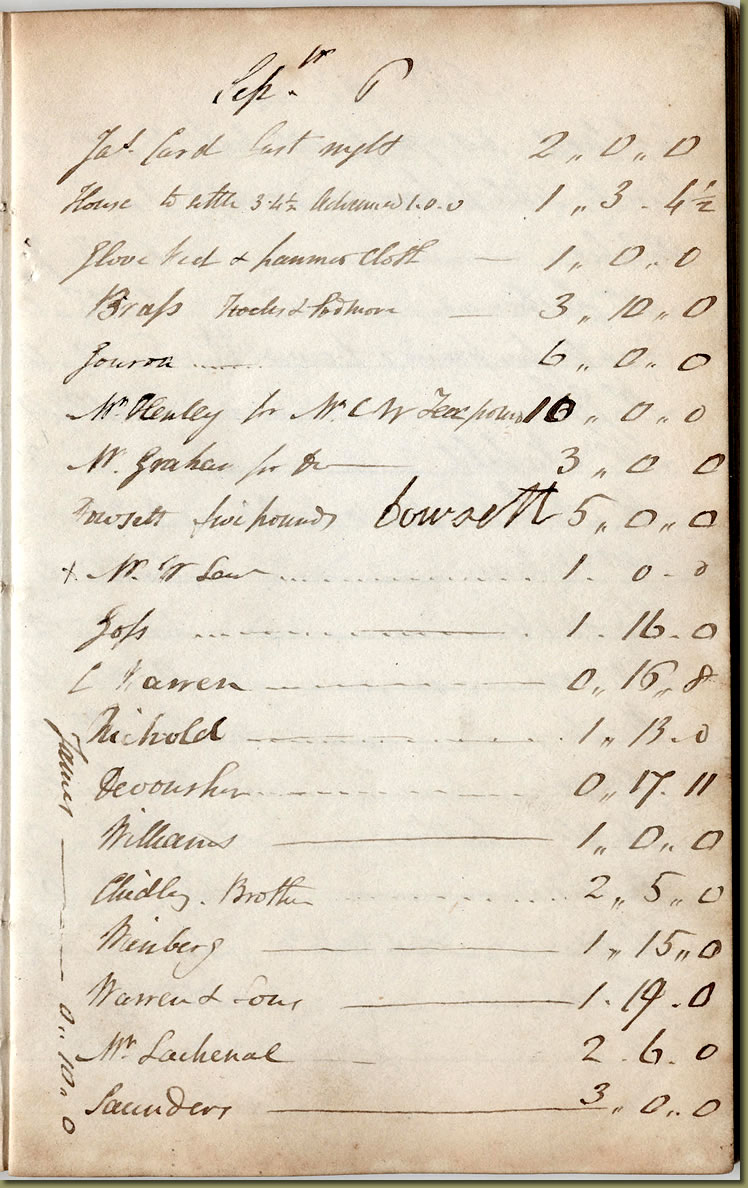 Sepr. 6
Jas. Card last night 2 " 0 " 0
House to settle 3-4½ Advanced 1.0.0 1 " 3 - 4½
Glove & hammer Cloth — 1 " 0 " 0
Brass & Pidmore — 3 " 10 " 0
6 " 0 " 0
Mr Henley for Mr C W Ten pound 10 " 0 " 0
Mr. Graham for Do — 3 " 0 0
Dowsett five pounds Dowsett 5 " 0 " 0
x Mr. W Law 1. 0 - 0
Goss 1 . 16 . 0
C Warren 0 " 16 " 8
Nickold 1 " 13 . 0
Devonsher 0 " 17 . 11
Williams — 1 " 0 " 0
Chidley . Brother 2 " 5 " 0
Wineberg — 1 " 15 " 0
Warren & Sons — 1 . 19 . 0
Mr Lachenal 2 . 6 . 0
Saunders — 3 " 0 " 0
James — 0 " 10 " 0